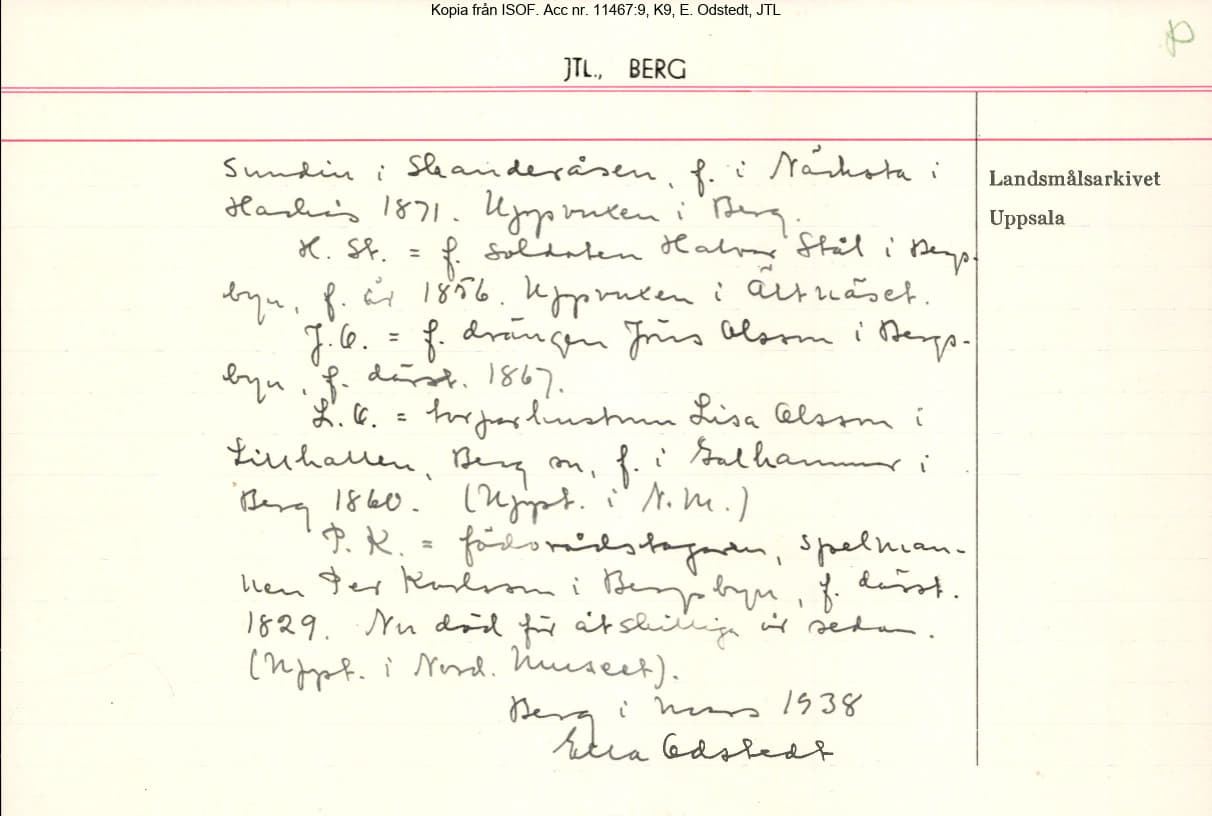 Kopia från ISOF. Acc nr. 11467:9, K9, E. Odstedt, JTL
JTL., BERG
Landsmålsarkivet
Uppsala
Sundin i Skanderåsen, f. i Näcksta i
Hackås 1871. Uppvuxen i Berg.
H. St. = f. soldaten Halvar Stål i Bergs-
byn, f. år 1856. Uppvuxen i Ältnäset.
J.O. = f. drängen Jöns Olsson i Bergs-
byn, f. därst. 1867.
L.O. = torparhustrun Lisa Olsson i
Lillhallen, Berg sn, f. i Galhammar i
Berg 1860. (Uppt. i N.M.)
P. K. = födorådstagaren, spelman-
nen Per Karlsson i Bergsbyn, f. därst.
1829. Nu död för åtskilliga år sedan.
(Uppt. i Nord. Museet).
Berg i mars 1938
Ella Odstedt